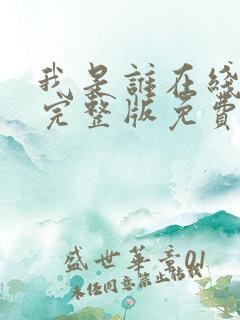 我是誰在綫
完整版免費
盛世華章01
未经同意禁止轉載